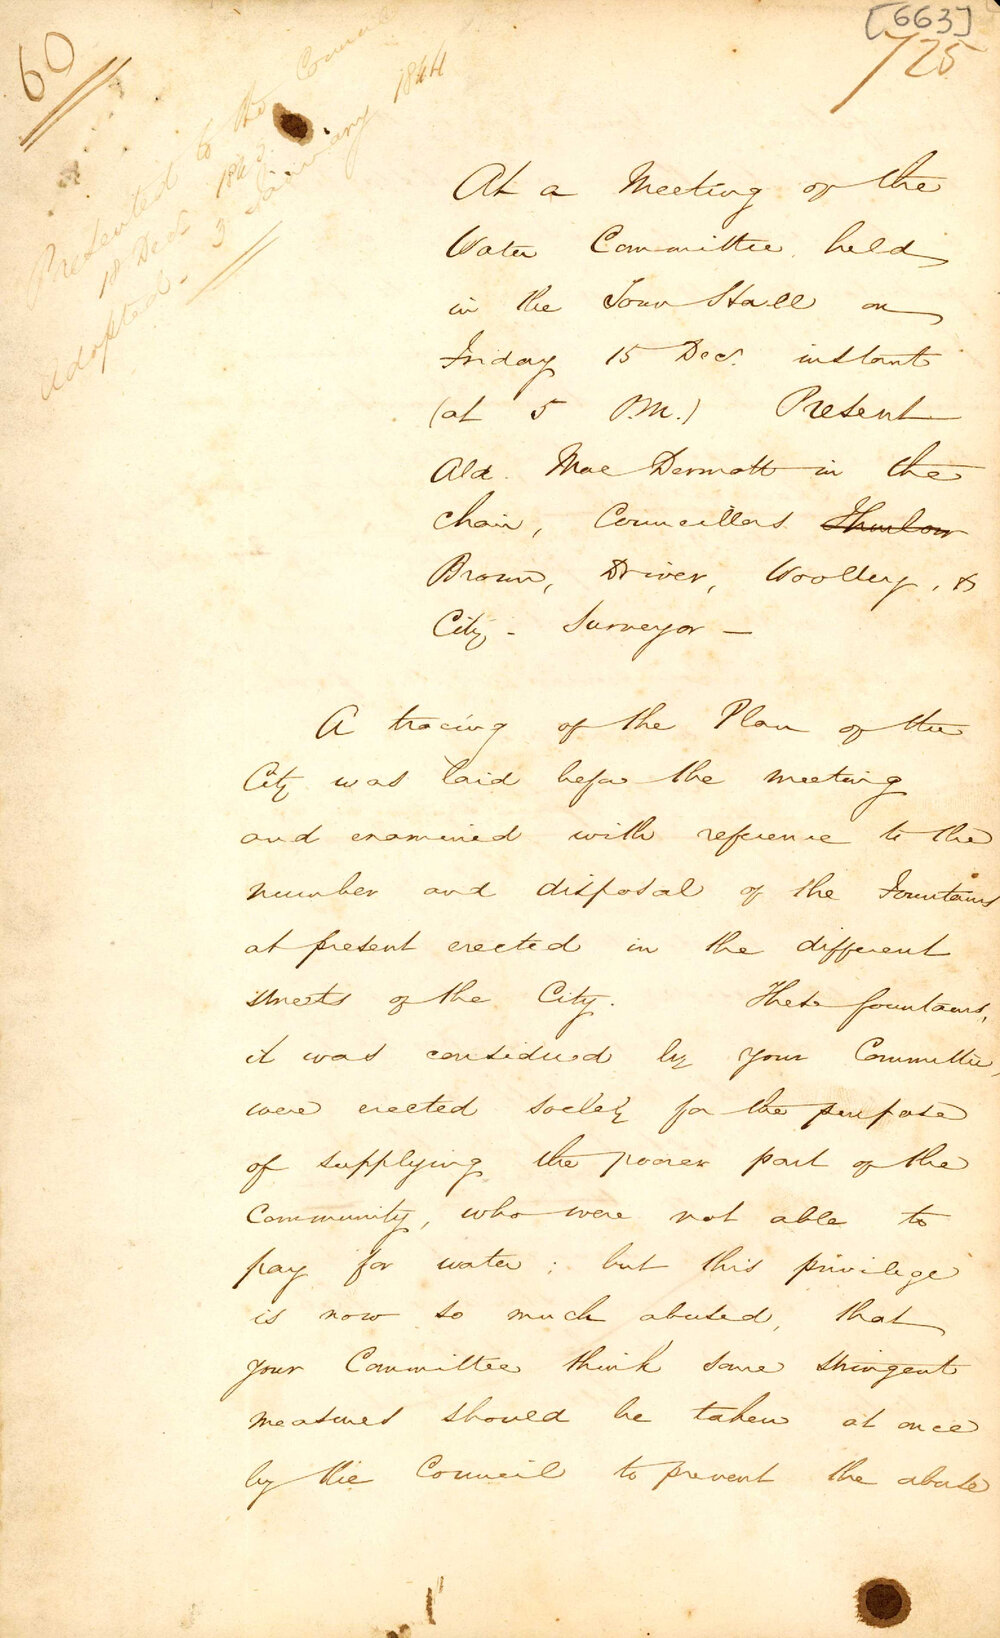 [663]
725
60
Presented to the Council
18 Decr 1843
Adopted - 3 January 1844
At a Meeting of the
Water Committee held
in the Town Hall on
Friday 15 Decr. instant
(at 5 P.M.) Present
Ald. Mac Dermott in the
chair, Councillors Thurlow
Brown, Driver, Woolley, &
City - Surveyor -
A tracing of the Plan of the
City was laid before the meeting
and examined with reference to the
number and disposal of the Fountains
at present erected in the different
streets of the City. These fountains,
it was considered by your Committee,
were erected solely for the purpose
of supplying the poorer part of the
Community, who were not able to
pay for water ; but this privilege
is now so much abused, that
your Committee think some stringent
measures should be taken at once
by the Council to prevent the abuse